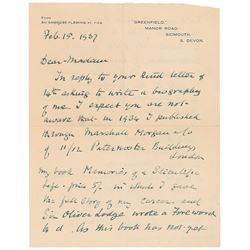 FROM
SIR AMBROSE FLEMING, KT., F.R.S.
"GREENFIELD,"
MANOR ROAD,
SIDMOUTH,
S. DEVON.
Feb. 15. 1937
Dear Madam
In reply to your kind letter of
14th asking to write a biography
of me I expect you are not
aware that in 1934 I published
through Marshall Morgan & Co
of 11/12 Paternoster Buildings
London
my book Memories of a Scientific
life - price 5/- in which I gave
the full story of my career and
Sir Oliver Lodge wrote a Foreword
to it. As this book has not yet